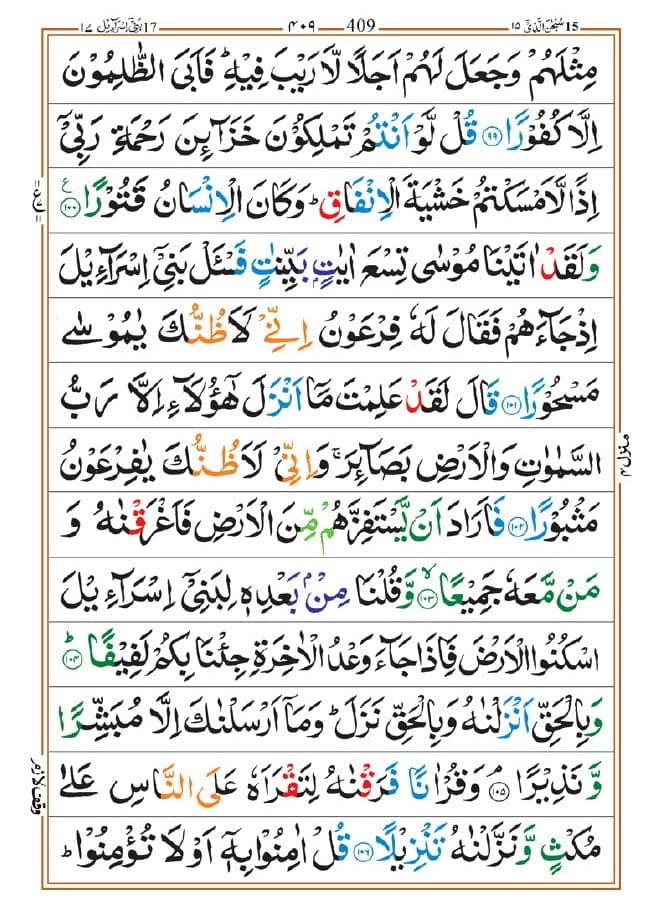 17 بَنِیْۤ اِسْرَآءِیْل ١٧ ٤٠٩ 409 15 سُبْحٰنَ الَّذِیْۤ ١٥
مِثْلَهُمْ وَ جَعَلَ لَهُمْ اَجَلًا لَّا رَیْبَ فِیْهِ ؕ فَاَبَی الظّٰلِمُوْنَ
اِلَّا كُفُوْرًا ۟۹۹ قُلْ لَّوْ اَنْتُمْ تَمْلِكُوْنَ خَزَآئِنَ رَحْمَةِ رَبِّیْۤ
اِذًا لَّاَمْسَكْتُمْ خَشْیَةَ الْاِنْفَاقِ ؕ وَ كَانَ الْاِنْسَانُ قَتُوْرًا ۟۱۰۰ ع
وَ لَقَدْ اٰتَیْنَا مُوْسٰی تِسْعَ اٰیٰتٍۭ بَیِّنٰتٍ فَسْـَٔلْ بَنِیْۤ اِسْرَآءِیْلَ
اِذْ جَآءَهُمْ فَقَالَ لَهٗ فِرْعَوْنُ اِنِّیْ لَاَظُنُّكَ یٰمُوْسٰی
مَسْحُوْرًا ۟۱۰۱ قَالَ لَقَدْ عَلِمْتَ مَاۤ اَنْزَلَ هٰۤؤُلَآءِ اِلَّا رَبُّ
السَّمٰوٰتِ وَ الْاَرْضِ بَصَآئِرَ ۚ وَ اِنِّیْ لَاَظُنُّكَ یٰفِرْعَوْنُ
مَثْبُوْرًا ۟۱۰۲ فَاَرَادَ اَنْ یَّسْتَفِزَّهُمْ مِّنَ الْاَرْضِ فَاَغْرَقْنٰهُ وَ
مَنْ مَّعَهٗ جَمِیْعًا ۙ۱۰۳ وَّ قُلْنَا مِنْۢ بَعْدِهٖ لِبَنِیْۤ اِسْرَآءِیْلَ
اسْكُنُوا الْاَرْضَ فَاِذَا جَآءَ وَعْدُ الْاٰخِرَةِ جِئْنَا بِكُمْ لَفِیْفًا ؕ۱۰۴
وَ بِالْحَقِّ اَنْزَلْنٰهُ وَ بِالْحَقِّ نَزَلَ ؕ وَ مَاۤ اَرْسَلْنٰكَ اِلَّا مُبَشِّرًا
وَّ نَذِیْرًا ۘ۱۰۵ وَ قُرْاٰنًا فَرَقْنٰهُ لِتَقْرَاَهٗ عَلَی النَّاسِ عَلٰی
مُكْثٍ وَّ نَزَّلْنٰهُ تَنْزِیْلًا ۟۱۰۶ قُلْ اٰمِنُوْا بِهٖۤ اَوْ لَا تُؤْمِنُوْا ؕ
منزل ٤
وقف لازم